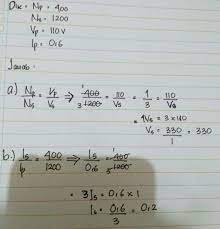 Dik = Np = 400
Ns = 1200
Vp = 110 V
Ip = 0,6
Jawab :
a.) Np/Ns = Vp/Vs ⇒ 1 400/3 1200 = 110/Vs = 1/3 = 110/Vs
= 1Vs = 3 x 110
Vs = 330/1 = 330
b.) Is/Ip = 400/1200 ⇒ Is/0,6 = 1 400/3 1200
= 3 Is = 0,6 x 1
Is = 0,6/3 = 0,2